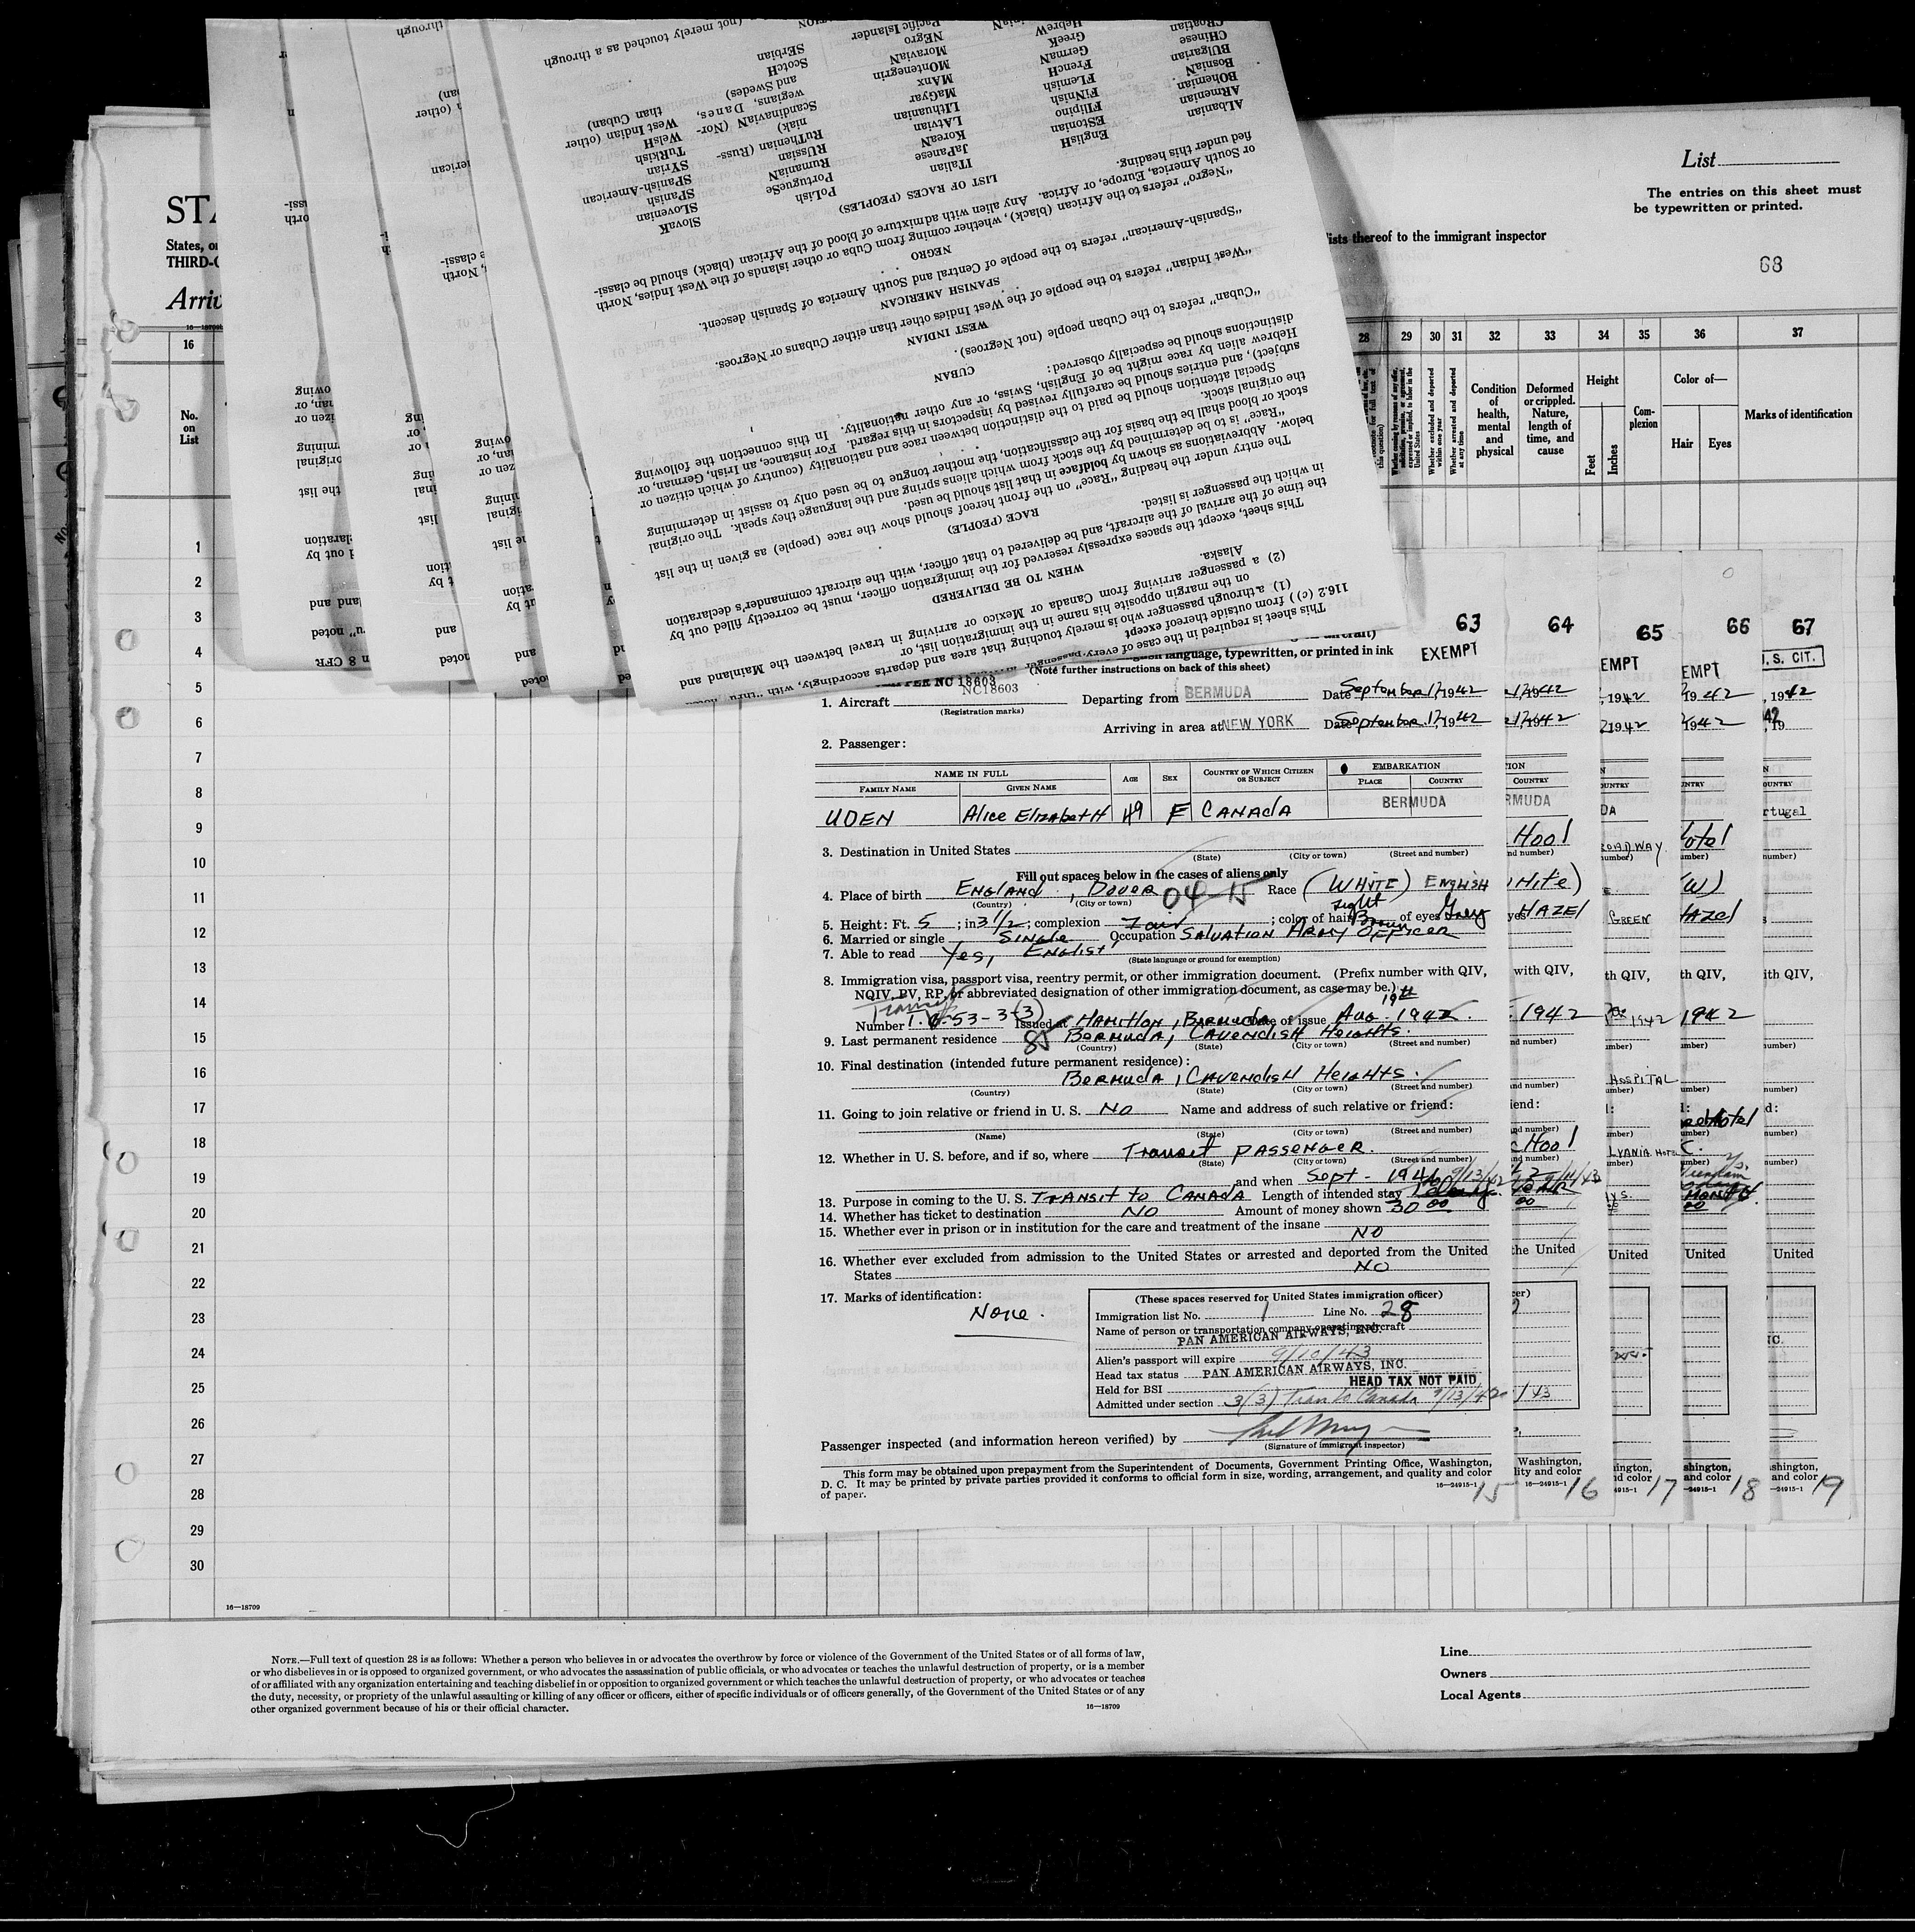 List
The entries on this sheet must
be typewritten or printed.
STA
States, o
THIRD-C
ists thereof to the immigrant inspector
68
Arriv
16
28 29 30 31 32 33 34 35 36 37
No.
on
List
Condition
of
health,
mental
and
physical
Deformed
or crippled.
Nature,
length of
time, and
cause
Height
Feet
Inches
Com-
plexion
Color of—
Hair Eyes
Marks of identification
Whether excluded and deported
within one year
Whether arrested and deported
at any time
1
2
3
4
5
6
7
8
9
10
11
12
13
14
15
16
17
18
19
20
21
22
23
24
25
26
27
28
29
30
16—18709
This sheet is required in the case of every passenger
116.2 (c)) from outside thereof except
(1) a through passenger who is merely touching that area and departs accordingly, with "thru" noted
on the margin opposite his name in the immigration list, or
(2) a passenger arriving from Canada or Mexico or arriving in travel between the Mainland and
Alaska.
WHEN TO BE DELIVERED
This sheet, except the spaces expressly reserved for the immigration officer, must be correctly filled out by
the time of the arrival of the aircraft, and be delivered to that officer, with the aircraft commander's declaration
in which the passenger is listed.
RACE (PEOPLE)
The entry under the heading "Race" on the front hereof should show the race (people) as given in the list
below. Abbreviations as shown by boldface in that list should be used.
"Race" is to be determined by the stock from which aliens spring and the language they speak. The original
stock or blood shall be the basis for the classification, the mother tongue to be used only to assist in determining
the original stock.
Special attention should be paid to the distinction between race and nationality (country) of which citizen or
subject), and entries should be carefully revised by inspectors in this regard. For instance, an Irish, German, or
Hebrew alien by race might be of English, Swiss, or any other nationality. In this connection the following
distinctions should be especially observed:
CUBAN
"Cuban" refers to the Cuban people (not Negroes).
WEST INDIAN
"West Indian" refers to the people of the West Indies other than either Cubans or Negroes.
SPANISH AMERICAN
"Spanish-American" refers to the people of Central and South America of Spanish descent.
NEGRO
"Negro" refers to the African (black), whether coming from Cuba or other islands of the West Indies, North
or South America, Europe, or Africa. Any alien with admixture of blood of the African (black) should be classi-
fied under this heading.
LIST OF RACES (PEOPLES)
ALbanian
ARmenian
BOhemian
BosniaN
BUlgarian
CHinese
CRoatian
EnglisH
EStonian
FIlipino
FiNnisH
FLemish
FrencH
GermaN
GreeK
HebreW
ITalian
JaPanese
KoreaN
LAtviaN
LIthuanian
MaGyar
MAnx
MOntenegrin
MoraviaN
NEgro
Pacific Islander
PoLish
PortugueSe
RumaniaN
RUssian
RuThenian (Russ-
niak)
ScandinaviaN (Nor-
wegians, Danes,
and Swedes)
ScotcH
SErbian
SlovaK
SLOvenian
SPanisH
SPanish-American
SYrian
TuRkish
WelsH
West Indian (other
than Cuban)
(not merely touched as a through
63
EXEMPT
language, typewritten, or printed in ink
(Note further instructions on back of this sheet)
NC18603
1. Aircraft NC18603 Departing from BERMUDA Date September 17, 1942
(Registration marks)
Arriving in area at NEW YORK Date September 17, 1942
2. Passenger:
NAME IN FULL AGE SEX COUNTRY OF WHICH CITIZEN OR SUBJECT EMBARKATION
FAMILY NAME GIVEN NAME PLACE COUNTRY
UDEN Alice Elizabeth 49 F CANADA BERMUDA
3. Destination in United States
(State) (City or town) (Street and number)
Fill out spaces below in the cases of aliens only
4. Place of birth ENGLAND, DOVER Race (WHITE) ENGLISH
(Country) (City or town)
5. Height: Ft. 5; in 3 1/2; complexion Fair; color of hair Light Brown of eyes Grey
6. Married or single Single Occupation SALVATION ARMY OFFICER
7. Able to read Yes, English
(State language or ground for exemption)
8. Immigration visa, passport visa, reentry permit, or other immigration document. (Prefix number with QIV,
NQIV, PV, RP, or abbreviated designation of other immigration document, as case may be.)
Transit
Issued at HAMILTON, BERMUDA Date of issue Aug. 19th 1942.
9. Last permanent residence BERMUDA, CAVENDISH HEIGHTS.
(Country) (State) (City or town) (Street and number)
10. Final destination (intended future permanent residence):
BERMUDA, CAVENDISH HEIGHTS.
(Country) (State) (City or town) (Street and number)
11. Going to join relative or friend in U. S. NO Name and address of such relative or friend:
(Name) (State) (City or town) (Street and number)
12. Whether in U. S. before, and if so, where Transit PASSENGER.
(State) (City or town) (Street and number)
and when Sept -
13. Purpose in coming to the U. S. TRANSIT to CANADA Length of intended stay
14. Whether has ticket to destination NO Amount of money shown 30 00
15. Whether ever in prison or in institution for the care and treatment of the insane NO
16. Whether ever excluded from admission to the United States or arrested and deported from the United
States NO
17. Marks of identification:
None.
(These spaces reserved for United States immigration officer)
Immigration list No. 1 Line No. 28
Name of person or transportation company operating aircraft
PAN AMERICAN AIRWAYS, INC.
Alien's passport will expire 9/10/43
Head tax status PAN AMERICAN AIRWAYS, INC.
HEAD TAX NOT PAID
Held for BSI
Admitted under section 3(3) Tran to Canada
Passenger inspected (and information hereon verified) by
(Signature of immigrant inspector)
This form may be obtained upon prepayment from the Superintendent of Documents, Government Printing Office, Washington,
D. C. It may be printed by private parties provided it conforms to official form in size, wording, arrangement, and quality and color
of paper.
16—24915-1
15
64
1942
RMUDA
HAZEl
with QIV,
1942
the United
16
65
EMPT
1942
ROADWAY
GREEN
1942
HOSPITAL
United
17
66
EMPT
1942
1942
(W)
HAZEl
1942
United
18
67
U. S. CIT.
, 1942
rtugal
ith QIV,
United
19
NOTE.—Full text of question 28 is as follows: Whether a person who believes in or advocates the overthrow by force or violence of the Government of the United States or of all forms of law,
or who disbelieves in or is opposed to organized government, or who advocates the assassination of public officials, or who advocates or teaches the unlawful destruction of property, or is a member
of or affiliated with any organization entertaining and teaching disbelief in or opposition to organized government or which teaches the unlawful destruction of property, or who advocates or teaches
the duty, necessity, or propriety of the unlawful assaulting or killing of any officer or officers, either of specific individuals or of officers generally, of the Government of the United States or of any
other organized government because of his or their official character.
16—18709
Line
Owners
Local Agents